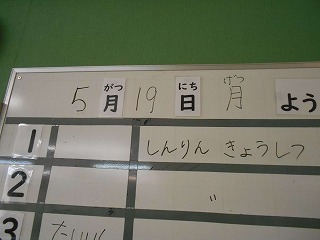 がつ にち げつ
5月19日 月よう
1 しんりん きょうしつ
2 〃
3 たいいく